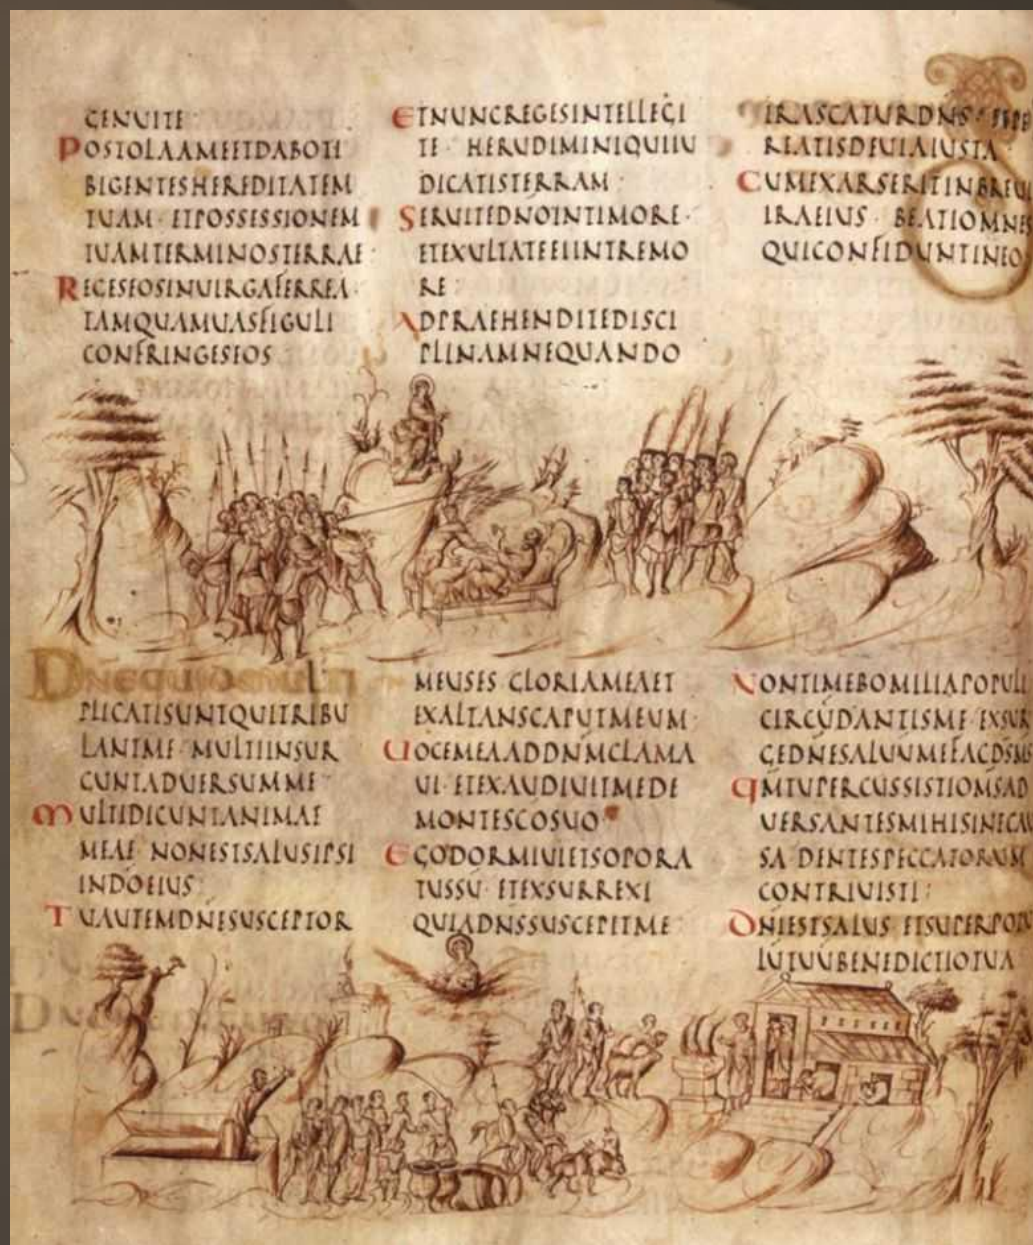 GENUITE
POSTOLAAMEETDABOTI
BIGENTESHEREDITATEM
TUAM·ETPOSSESSIONEM
TUAMTERMINOSTERRAE·
REGESEOSINUIRGAFERREA·
TAMQUAMUASFIGULI
CONFRINGESEOS
ETNUNCREGESINTELLEGI
TE· HERUDIMINIQUIIU
DICATISTERRAM·
SERUITEDNOINTIMORE·
ETEXULTATEEIINTREMO
RE:
ADPRAEHENDITEDISCI
PLINAMNEQUANDO
IRASCATURDNS· ETPE
REATISDEUIAIUSTA
CUMEXARSERITINBREUI
IRAEIUS· BEATIOMNES
QUICONFIDUNTINEO
DNEQUIDMULTI
PLICATISUNTQUITRIBU
LANTME· MULTIINSUR
GUNTADUERSUMME·
MULTIDICUNTANIMAE
MEAE NONESTSALUSIPSI
INDOEIUS·
TUAUTEMDNESUSCEPTOR
MEUSES GLORIAMEAET
EXALTANSCAPUTMEUM·
UOCEMEAADDNMCLAMA
UI· ETEXAUDIUITMEDE
MONTESCOSUO
EGODORMIUIETSOPORA
TUSSU· ETEXSURREXI
QUIADNSSUSCEPITME·
NONTIMEBOMILIAPOPULI
CIRCUDANTISME· EXSUR
GEDNESALUUMEFACDSMS
QMTUPERCUSSISTIOMSAD
UERSANTESMIHISINECAU
SA DENTESPECCATORUM
CONTRIUISTI:
DNIESTSALUS ETSUPERPOP
LUTUUBENEDICTIOTUA